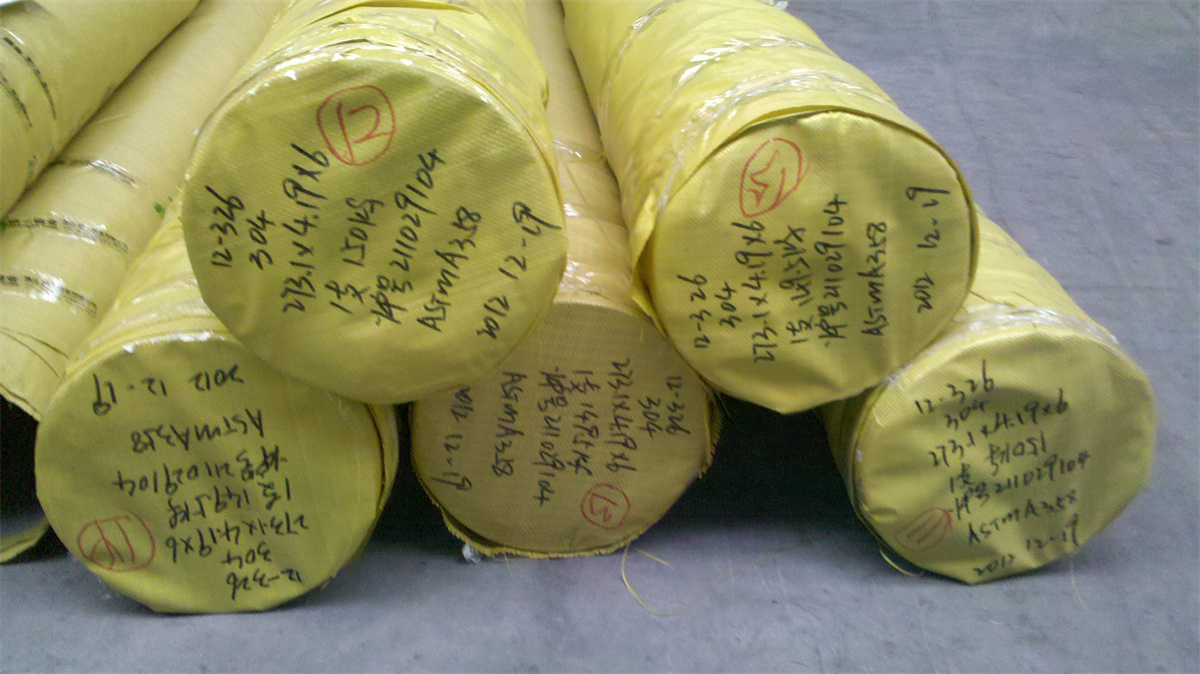 12
12-326
304
273.1×4.19×6
1支 150KG
炉号211029104
ASTMA358
2012 12-19
15
12-326
304
273.1×4.19×6
1支
炉号211029104
ASTMA358
2012 12-19
12-326
304
273.1×4.19×6
1支 149.5KG
炉号211029104
ASTMA358
2012 12-19
14
12-326
304
273.1×4.19×6
1支 149.5KG
炉号211029104
ASTMA358
2012 12-19
13
12-326
304
273.1×4.19×6
1支 150KG
炉号211029104
ASTMA358
11